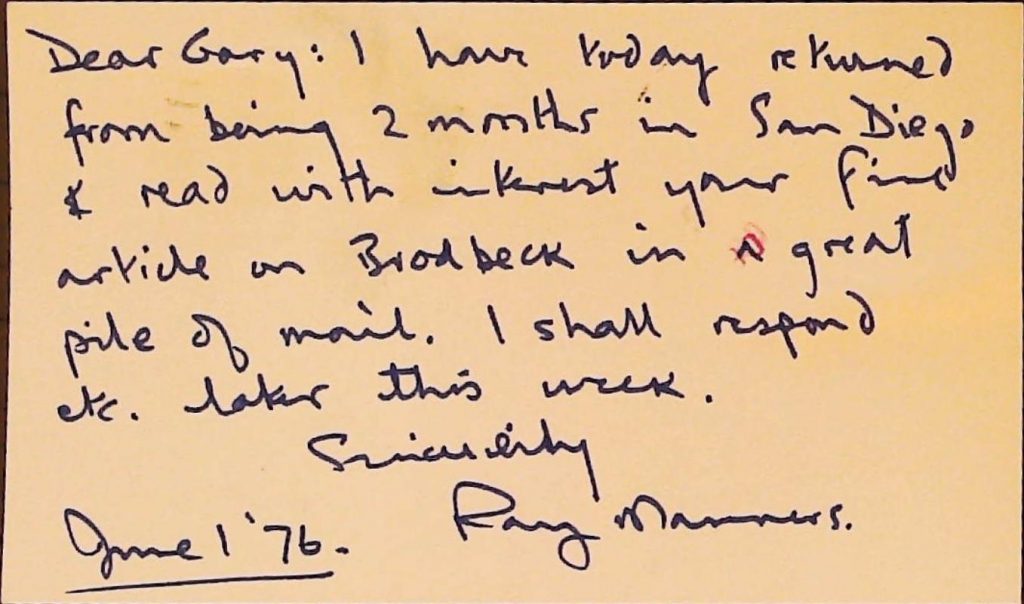 Dear Gary: I have today returned
from being 2 months in San Diego
& read with interest your fine
article on Brodbeck in a great
pile of mail. I shall respond
etc. later this week.
Sincerely
Ray Manners.
June 1 '76.